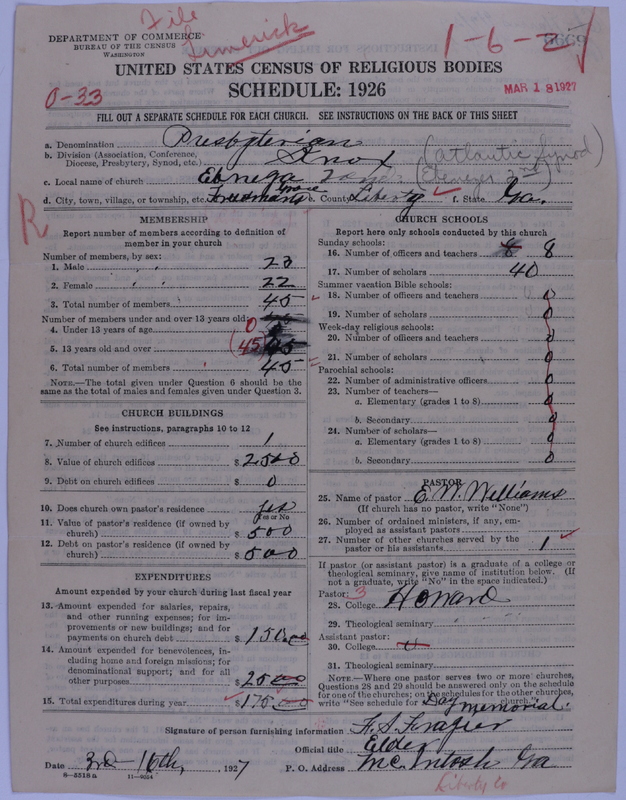 File
Limerick
1-6-21
9699
DEPARTMENT OF COMMERCE
BUREAU OF THE CENSUS
WASHINGTON
UNITED STATES CENSUS OF RELIGIOUS BODIES
MAR 18 1927
0-33
SCHEDULE: 1926
FILL OUT A SEPARATE SCHEDULE FOR EACH CHURCH. SEE INSTRUCTIONS ON THE BACK OF THIS SHEET
a. Denomination Presbyterian
b. Division (Association, Conference, Diocese, Presbytery, Synod, etc.) Knox (Atlantic Synod)
c. Local name of church Ebnega (Ebenezer 3rd)
d. City, town, village, or township, etc. Freemans Grove e. County Liberty f. State Ga.
R
MEMBERSHIP
Report number of members according to definition of
member in your church
Number of members, by sex:
1. Male 23
2. Female 22
3. Total number of members 45
Number of members under and over 13 years old:
4. Under 13 years of age 0
5. 13 years old and over (45) 45
6. Total number of members 45
NOTE.—The total given under Question 6 should be the
same as the total of males and females given under Question 3.
CHURCH BUILDINGS
See instructions, paragraphs 10 to 12
7. Number of church edifices 1
8. Value of church edifices $ 2500
9. Debt on church edifices $ 0
10. Does church own pastor's residence yes
Yes or No
11. Value of pastor's residence (if owned by
church) $ 500
12. Debt on pastor's residence (if owned by
church) $ 500
EXPENDITURES
Amount expended by your church during last fiscal year
13. Amount expended for salaries, repairs,
and other running expenses; for im-
provements or new buildings; and for
payments on church debt $ 150.00
14. Amount expended for benevolences, in-
cluding home and foreign missions; for
denominational support; and for all
other purposes $ 25.00
15. Total expenditures during year $ 175.00
CHURCH SCHOOLS
Report here only schools conducted by this church
Sunday schools:
16. Number of officers and teachers 8 8
17. Number of scholars 40
Summer vacation Bible schools:
18. Number of officers and teachers 0
19. Number of scholars 0
Week-day religious schools:
20. Number of officers and teachers 0
21. Number of scholars 0
Parochial schools:
22. Number of administrative officers 0
23. Number of teachers—
a. Elementary (grades 1 to 8) 0
b. Secondary 0
24. Number of scholars—
a. Elementary (grades 1 to 8) 0
b. Secondary 0
PASTOR
25. Name of pastor E. W. Williams
(If church has no pastor, write "None")
26. Number of ordained ministers, if any, em-
ployed as assistant pastors
27. Number of other churches served by the
pastor or his assistants 1
If pastor (or assistant pastor) is a graduate of a college or
theological seminary, give name of institution below. (If
not a graduate, write "No" in the space indicated.)
Pastor: 3
28. College Howard
29. Theological seminary
Assistant pastor:
30. College
31. Theological seminary
NOTE.—Where one pastor serves two or more churches,
Questions 28 and 29 should be answered only on the schedule
for one of the churches; on the schedules for the other churches,
write "See schedule for Day Memorial church."
Signature of person furnishing information F. S. Frazier
Official title Elder
Date 3rd-16th, 1927 P. O. Address McIntosh Ga
8—5518a 11—9054
Liberty Co